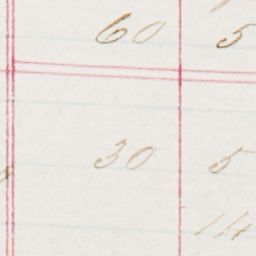 60 5
30 5
14